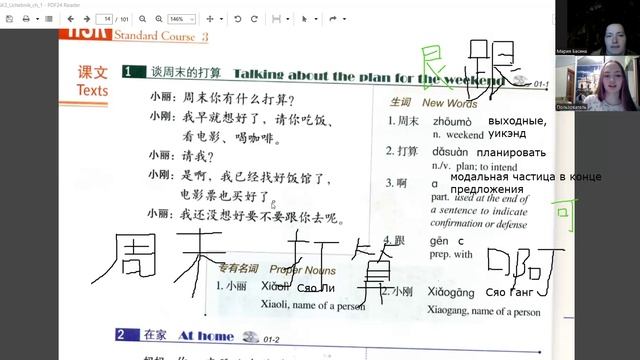 SK2_Uchebnik_ch_1 - PDF24 Reader
14 / 101
146%
HSK Standard Course 3
课文
Texts
1 谈周末的打算 Talking about the plan for the weekend 01-1
小丽：周末你有什么打算？
小刚：我早就想好了，请你吃饭、
看电影、喝咖啡。
小丽：请我？
小刚：是啊，我已经找好饭馆了，
电影票也买好了。
小丽：我还没想好要不要跟你去呢。
生词 New Words
1. 周末 zhōumò выходные,
n. weekend уикэнд
2. 打算 dǎsuàn планировать
n./v. plan; to intend
модальная частица в конце
предложения
3. 啊 ɑ
part. used at the end of
a sentence to indicate
confirmation or defense
4. 跟 gēn с
prep. with
艮 跟
可
周末 打算 啊
专有名词 Proper Nouns
1. 小丽 Xiǎolì Сяо Ли
Xiaoli, name of a person
2. 小刚 Xiǎogāng Сяо Ганг
Xiaogang, name of a person
2 在家 At home 01-2
Мария Басина
Пользователь